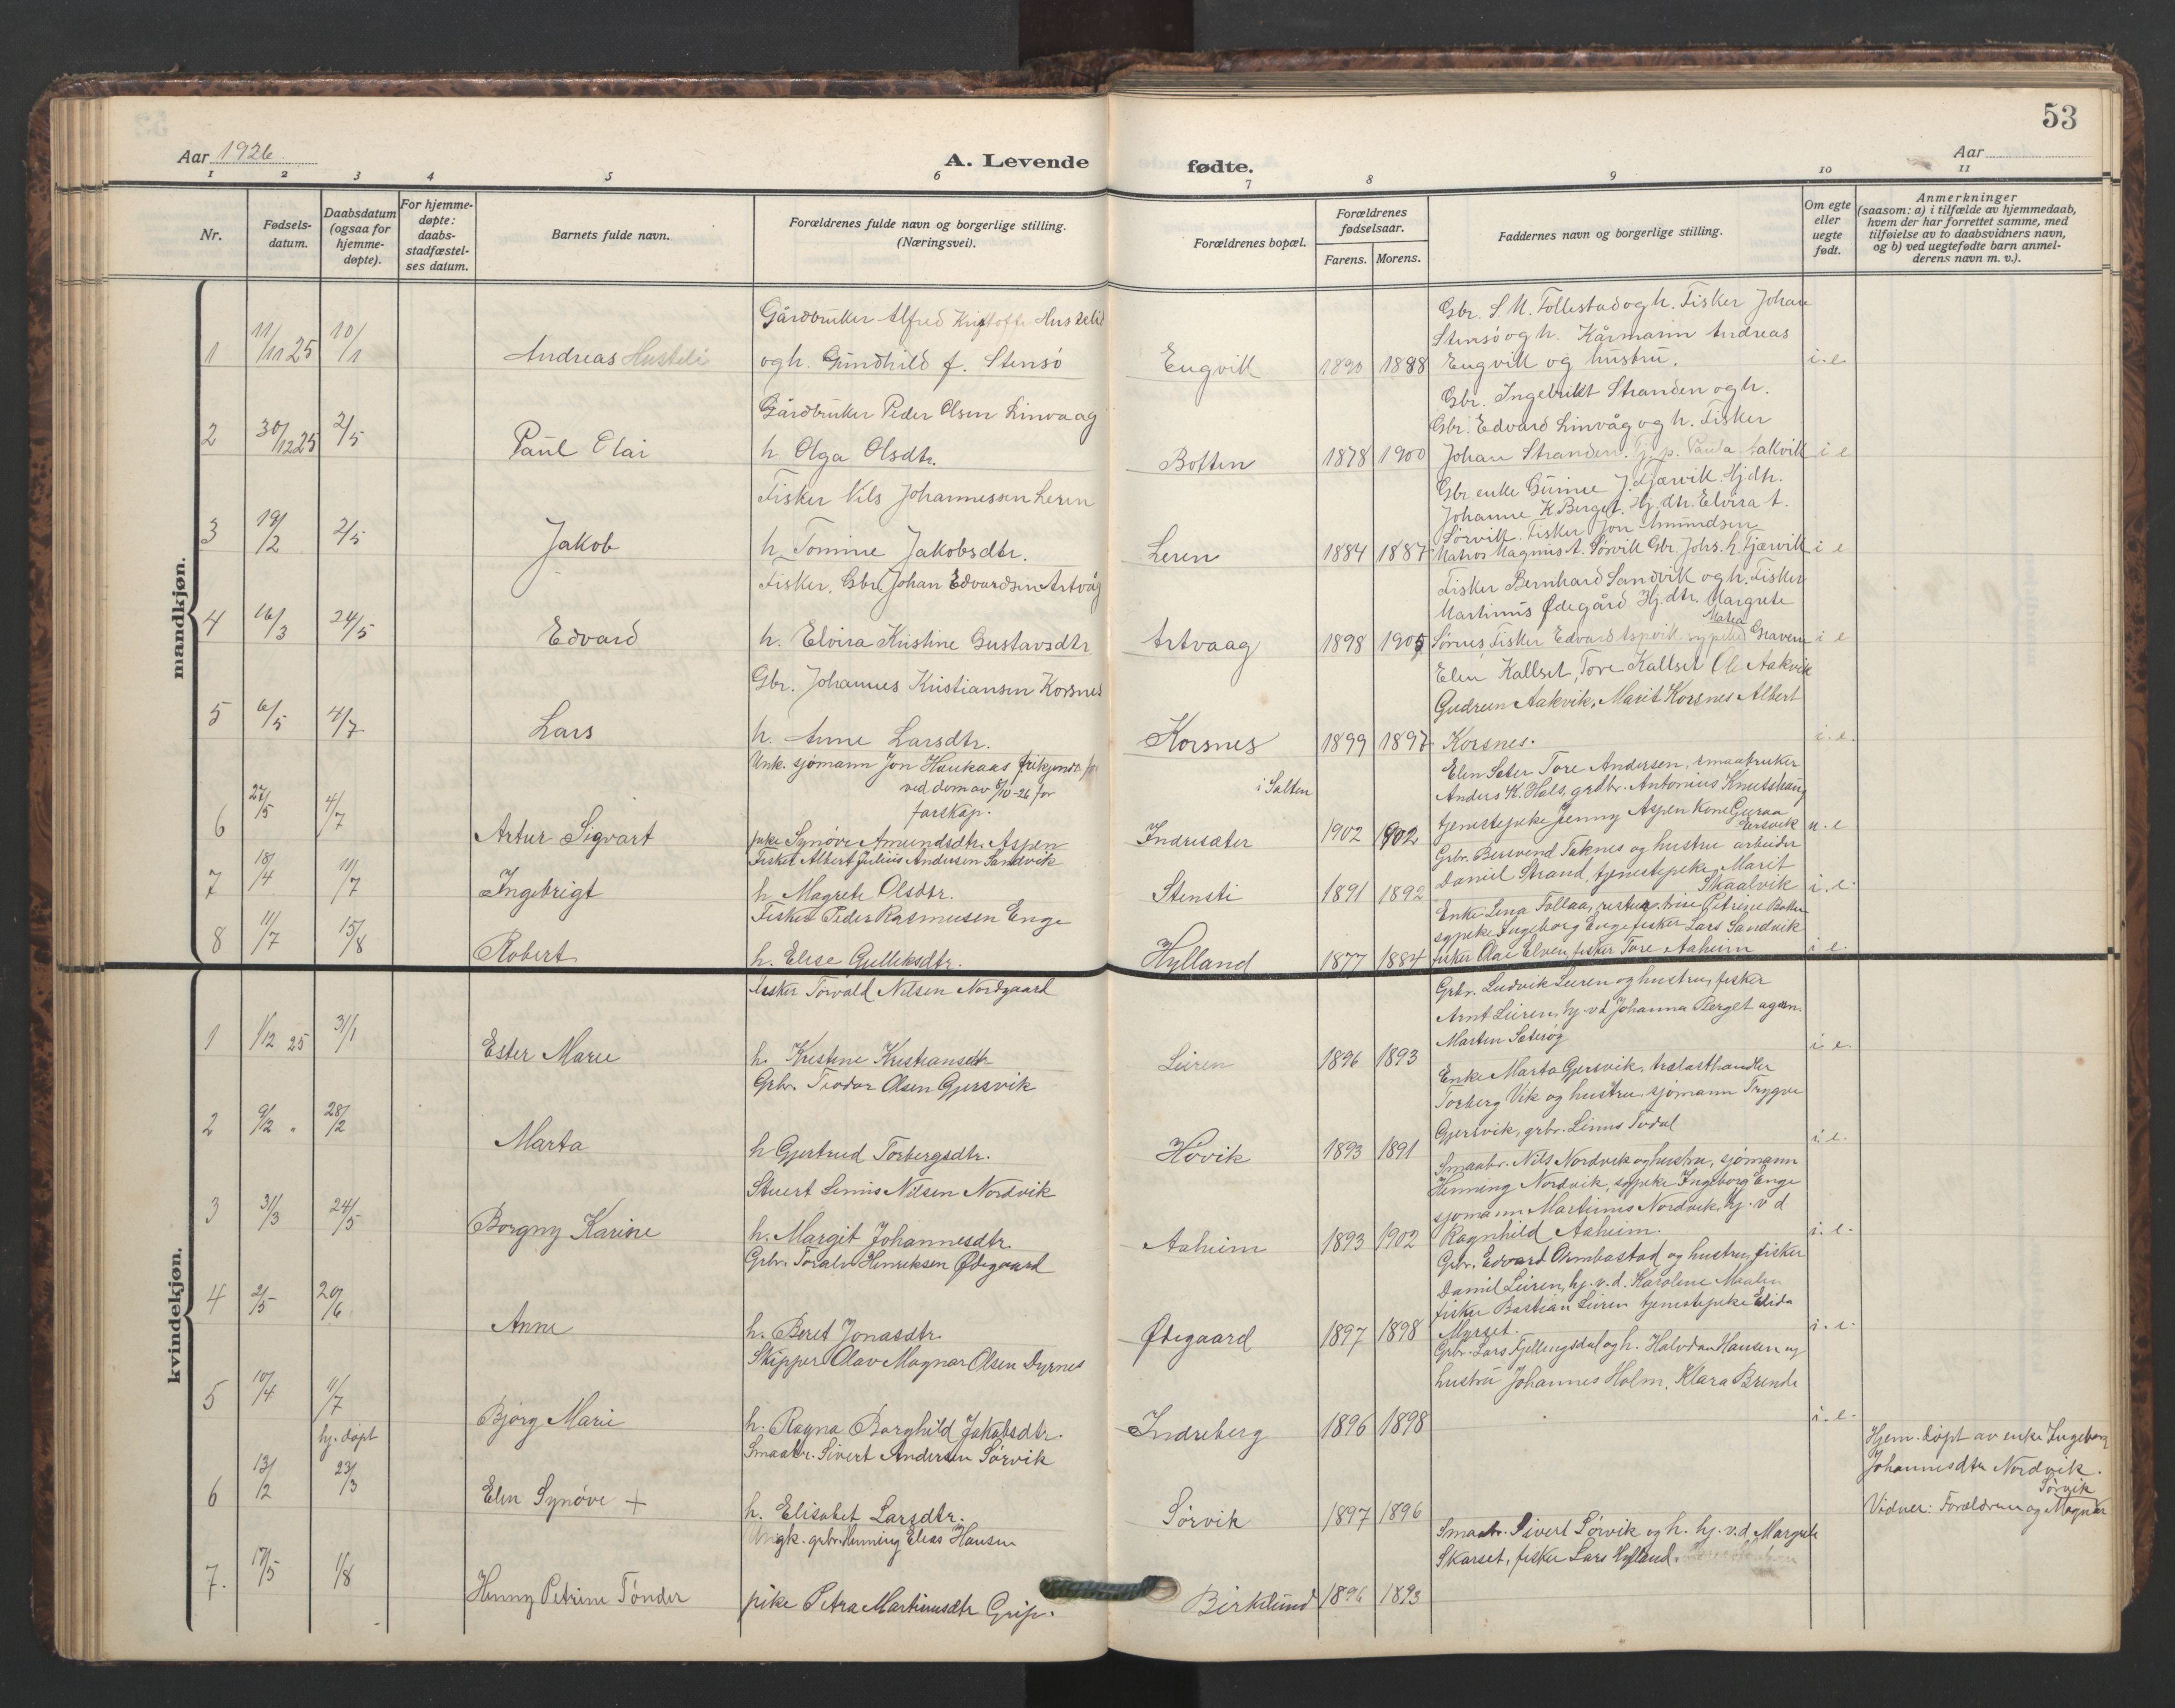 53
Aar 1926
A. Levende
fødte.
Aar
1 2 3 4 5 6 7 8 9 10 11
Nr.
Fødsels-
datum.
Daabsdatum
(ogsaa for
hjemme-
døpte).
For hjemme-
døpte:
daabs-
stadfæstel-
ses datum.
Barnets fulde navn.
Forældrenes fulde navn og borgerlige stilling.
(Næringsvei).
Forældrenes bopæl.
Forældrenes
fødselsaar.
Farens. Morens.
Faddernes navn og borgerlige stilling.
Om egte
eller
uegte
født.
Anmerkninger
(saasom: a) i tilfælde av hjemmedaab,
hvem der har forrettet samme, med
tilføielse av to daabsvidners navn,
og b) ved uegtefødte barn anmel-
derens navn m. v.).
mandkjøn.
1 11/11 25 10/1 Andreas Husteli
Gårdbruker Alfred Kristoffe Husteli
og h. Gundhild f. Stensö
Engvik 1890 1888
Gbr. S. M. Follestad og h. Fisker Johan
Stensö og h. Kårmann Andreas
Engvik og hustru.
i. e
2 30/12 25 2/5 Paul Olai
Gårdbruker Peder Olsen Linvaag
h. Olga Olsdtr.
Botten 1878 1900
Gbr. Ingebrikt Stranden og h.
Gbr. Edvard Linvåg og h. Fisker
Johan Stranden. Tj.p. Paula Aakvik
i e
3 19/2 2/5 Jakob
Fisker Nils Johannessen Leren
h. Tomine Jakobsdtr.
Leren 1884 1887
Gbr. enke Gurine J. Fjærvik. Hj.dtr.
Johanne K Berget. Hj. dtr. Elvira A.
Sørvik. Fisker Jon Amundsen
Matros Magnus A. Sørvik Gbr. Johs. h. Fjærvik
i e
4 16/3 24/5 Edvard
Fisker, Gbr. Johan Edvardsen Artvåg
h. Elvira Kristine Gustavsdtr.
Artvaag 1898 1905
Fisker Bernhard Sandvik og h. Fisker
Martinus Ødegård Hj.dtr. Margrete
Malea
Sørnes Fisker Edvard Aspvik, sypike Gravem
i e
5 6/5 4/7 Lars
Gbr. Johannes Kristiansen Korsnes
h. Anne Larsdtr.
Korsnes 1899 1897
Elen Kallset, Tore Kallset Ole Aakvik
Gudrun Aakvik, Marit Korsnes Albert
Korsnes.
i. e.
6 27/5 4/7 Artur Sigvart
Unk. sjömann Jon Haukaas frikjendt for
ved dom av 8/10-26 for
farskap.
pike Synöve Amundsdtr. Aspen
i Salten
Indresæter 1902 1902
Elen Sæter Tore Andersen, smaabruker
Anders K. Hals, grdbr. Antonius Knutshaug
tjenestepike Jenny Aspen Kone Guraa
Gersvik
u. e
7 18/4 11/7 Ingebrigt
Fisker Albert Julius Andersen Sandvik
h. Magrete Olsdtr.
Stensti 1891 1892
Grbr. Bersvend Taknes og hustru arbeider
Daniel Strand, tjenestepike Marit
Skaalvik
i. e.
8 11/7 15/8 Robert
Fisker Peder Rasmusen Enge
h. Elise Gulleksdtr.
Hylland 1877 1884
Enke Lina Follaa, restu trise Petrine Bakken
sypike Ingeborg Enge fisker Lars Sandvik
fisker Olai Elven, fisker Tore Aaheim
i e.
kvindekjøn.
1 1/12 25 31/1 Ester Marie
Fisker Torvald Nilsen Nordgaard
h. Kristine Kristiansdtr
Leiren 1896 1893
Grbr. Ludvik Leiren og hustru, fisker
Arnt Leiren, hj. vd Johanna Berget agam.
Martin Sæterøy
i. e.
2 9/2 " 28/2 Marta
Grbr. Teodor Olsen Gjersvik
h Gjertrud Torbergsdtr.
Hövik 1893 1891
Enke Marta Gjersvik, trælasthandler
Torberg Vik og hustru, sjömann Trygve
Gjersvik, grbr. Linus Todal
i e.
3 31/3 24/5 Borgny Karine
Stuert Linus Nilsen Nordvik
h. Margit Johannesdtr.
Aaheim 1893 1902
Smaabr. Nils Nordvik og hustru, sjömann
Henning Nordvik, sypike Ingeborg Enge
sjømann Martinus Nordvik, hj. v d
Ragnhild Aaheim.
i. e.
4 2/5 20/6 Anne
Grbr. Toralv Henriksen Ødegaard
h. Beret Jonasdtr.
Ødegaard 1897 1898
Grbr. Edvard Ormbostad og hustru, fisker
Daniel Leiren, hj. v. d. Karoline Maalen
fisker Bastian Leiren tjenestepike Elida
Myrset.
i. e.
5 10/4 11/7 Bjørg Marie
Skipper Olav Magnar Olsen Dyrnes
h. Ragna Borghild Jakobsdtr.
Indreberg 1896 1898
Grbr. Lars Fjellengsdal og h. Halvdan Hansen og
hustru Johannes Holm, Klara Brende
i. e.
6 13/2 hj. døpt 23/3 Elen Synöve +
Smaabr. Sivert Andersen Sörvik
h. Elisabet Larsdtr.
Sörvik 1897 1896
Hjem. döpt av enke Ingeborg
Johannesdtr Nordvik.
Sørvik
Vidner: Forældrene og Magnar
7. 17/5 1/8 Henny Petrine Tönder
Ungk. grbr. Henning Elias Hansen
pike Petra Martinusdtr Grip.
Birkelund 1896 1893
Smaabr. Sivert Sörvik og h. hj. v.d Margrete
Skarset, fisker Lars Hylland.